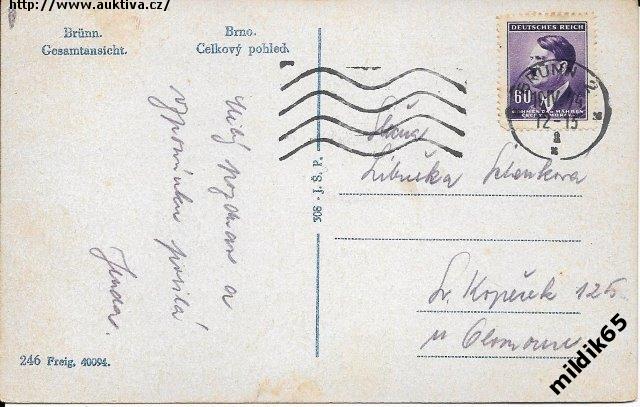 http://www.auktiva.cz/
Brünn.
Gesamtansicht.
Brno.
Celkový pohled.
DEUTSCHES REICH
60
BÖHMEN u. MÄHREN
ČECHY a MORAVA
BRÜNN 2
12-13
a
Milý pozdrav a
vzpomínku posílá
Jenda.
308 - J. Š. P.
Slečna
Libuška
Sv. Kopeček 126
u Olomouc
246 Freig. 40094.
mildik65